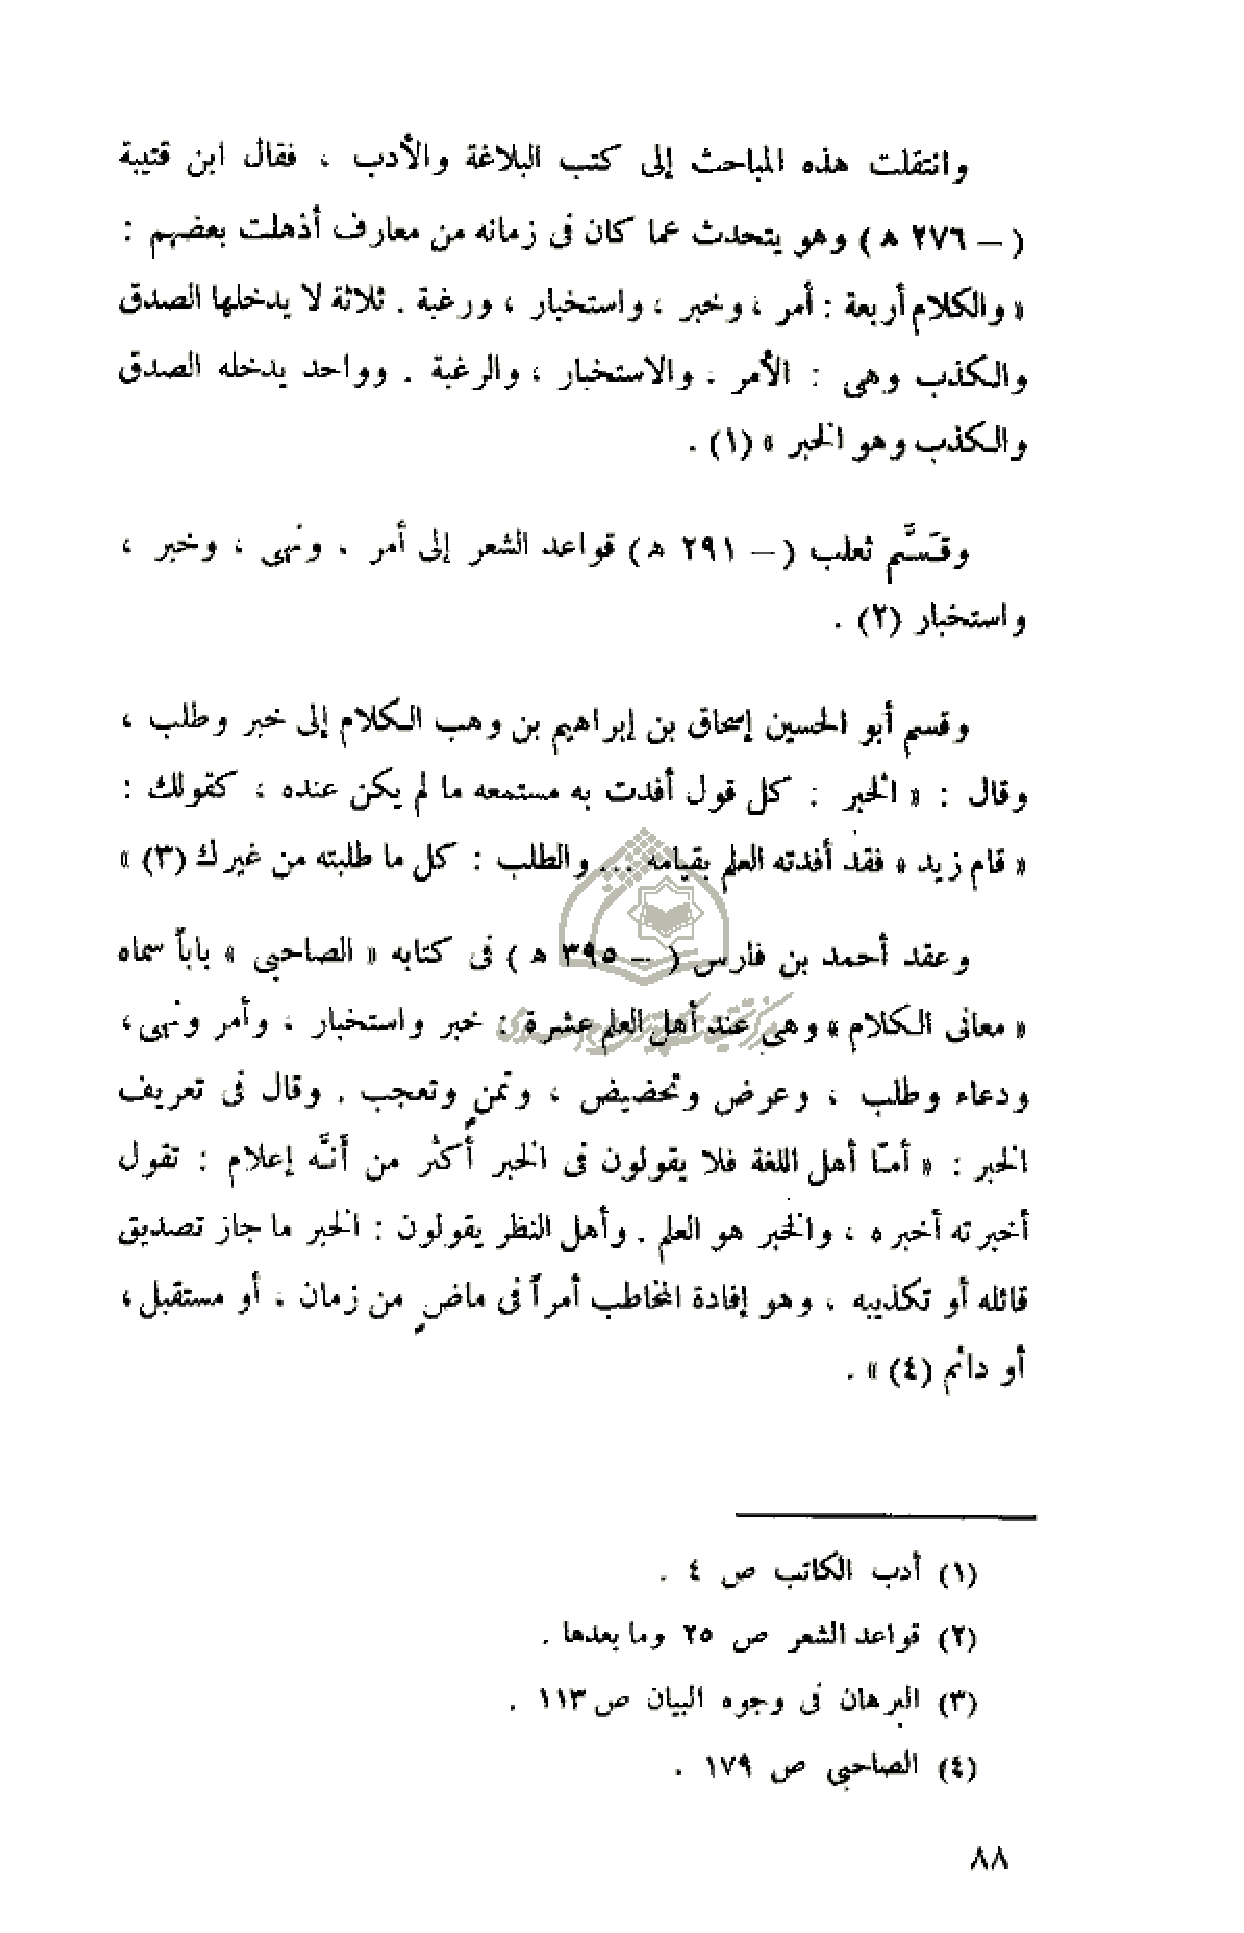 وانتقلت هذه المباحث إلى كتب البلاغة والأدب ، فقال ابن قتيبة
( – ٢٧٦ ه ) وهو يتحدث عما كان فى زمانه من معارف أذهلت بعضهم :
« والكلام أربعة : أمر ، وخبر ، واستخبار ، ورغبة . ثلاثة لا يدخلها الصدق
والكذب وهى : الأمر ، والاستخبار ، والرغبة . وواحد يدخله الصدق
والكذب وهو الخبر » (١) .
وقَسَّم ثعلب ( – ٢٩١ ه ) قواعد الشعر إلى أمر ، ونهى ، وخبر ،
واستخبار (٢) .
وقسم أبو الحسين إسحاق بن إبراهيم بن وهب الكلام إلى خبر وطلب ،
وقال : « الخبر : كل قول أفدت به مستمعه ما لم يكن عنده ، كقولك :
« قام زيد » فقد أفدته العلم بقيامه ... والطلب : كل ما طلبته من غيرك (٣) »
وعقد أحمد بن فارس ( – ٣٩٥ ه ) فى كتابه « الصاحبى » باباً سماه
« معانى الكلام » وهى عند أهل العلم عشرة : خبر واستخبار ، وأمر ونهى ،
ودعاء وطلب ، وعرض وتحضيض ، وتمنٍ وتعجب . وقال فى تعريف
الخبر : « أمـّا أهل اللغة فلا يقولون فى الخبر أكثر من أنـَّه إعلام : تقول
أخبرته أخبره ، والخبر هو العلم . وأهل النظر يقولون : الخبر ما جاز تصديق
قائله أو تكذيبه ، وهو إفادة المخاطب أمراً فى ماضٍ من زمان ، أو مستقبل ،
أو دائم (٤) » .
(١) أدب الكاتب ص ٤ .
(٢) قواعد الشعر ص ٢٥ وما بعدها .
(٣) البرهان فى وجوه البيان ص ١١٣ .
(٤) الصاحبى ص ١٧٩ .
٨٨